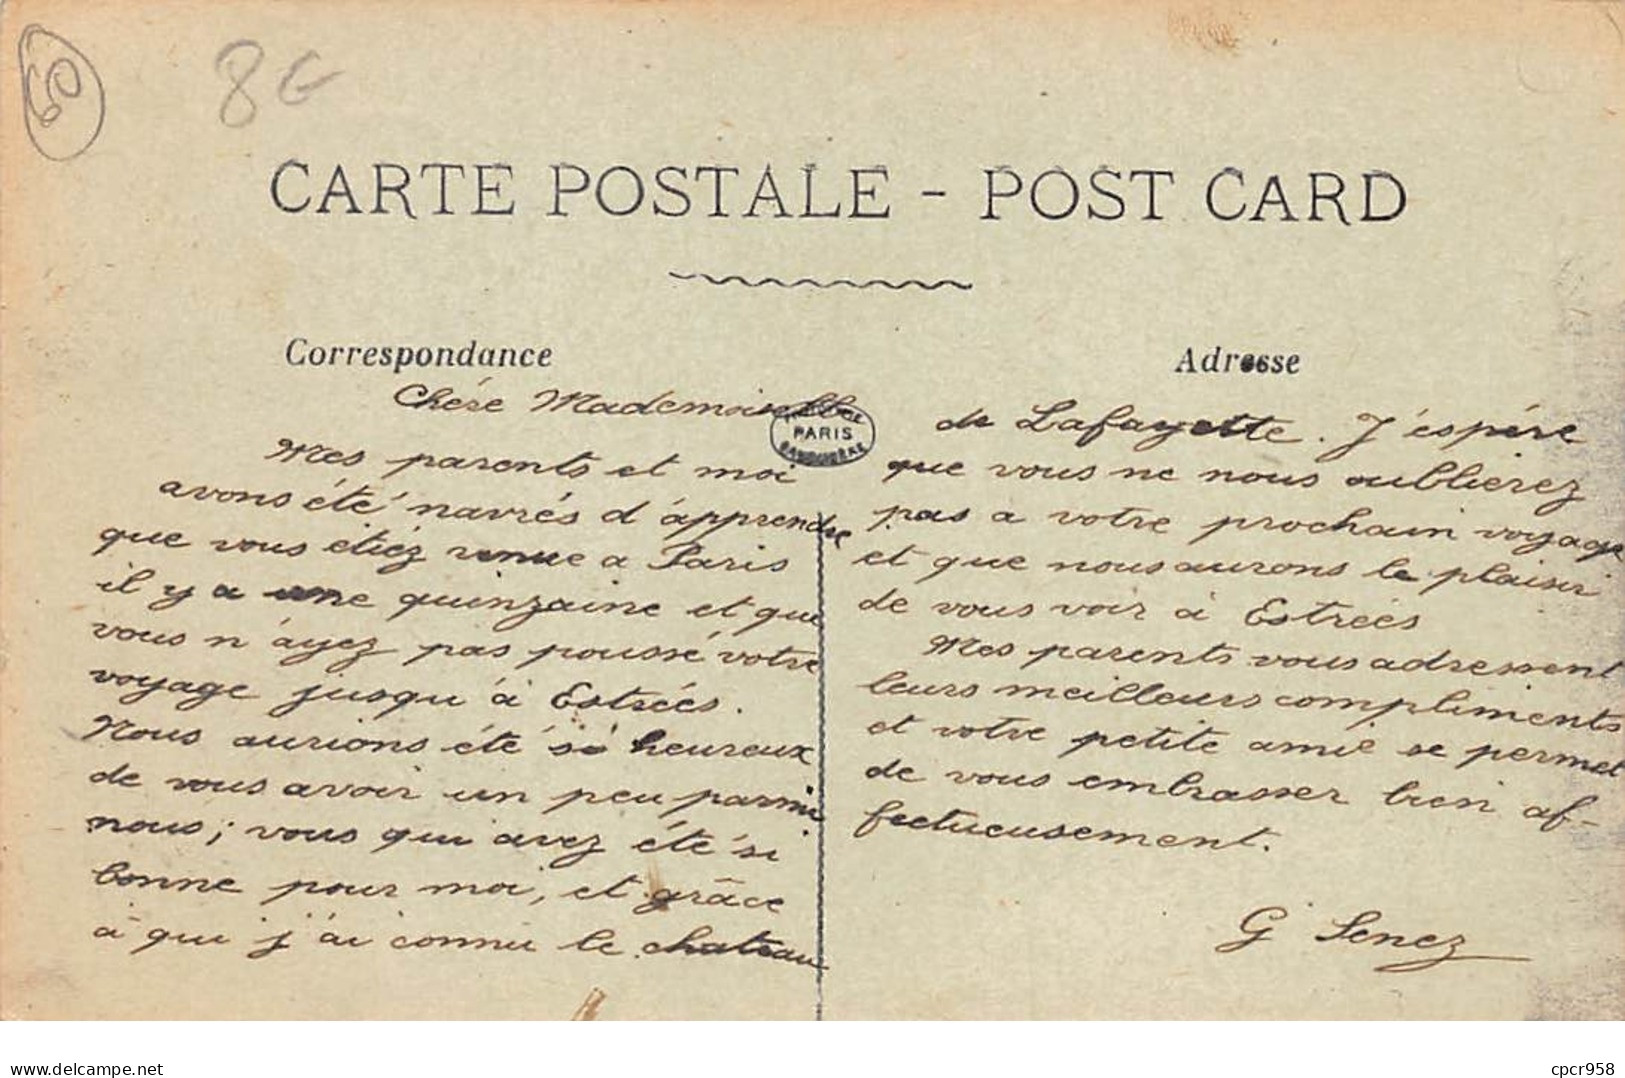 60
8€
CARTE POSTALE - POST CARD
Correspondance
Chére Mademoiselle
Mes parents et moi
avons été navrés d'apprendre
que vous etiez venue a Paris
il y a une quinzaine et que
vous n'ayez pas poussé votre
voyage jusqu'à Estrées.
Nous aurions été si heureux
de vous avoir un peu parmi
nous; vous qui avez été si
bonne pour moi, et grâce
à qui j'ai connu le chateau
PARIS
Adresse
de Lafayette. J'éspére
que vous ne nous oublierez
pas a votre prochain voyage
et que nous aurons le plaisir
de vous voir à Estrées
Mes parents vous adressent
leurs meilleurs compliments
et votre petite amie se permet
de vous embrasser bien af-
fectueusement.
G Senez
www.delcampe.net
cpcr958